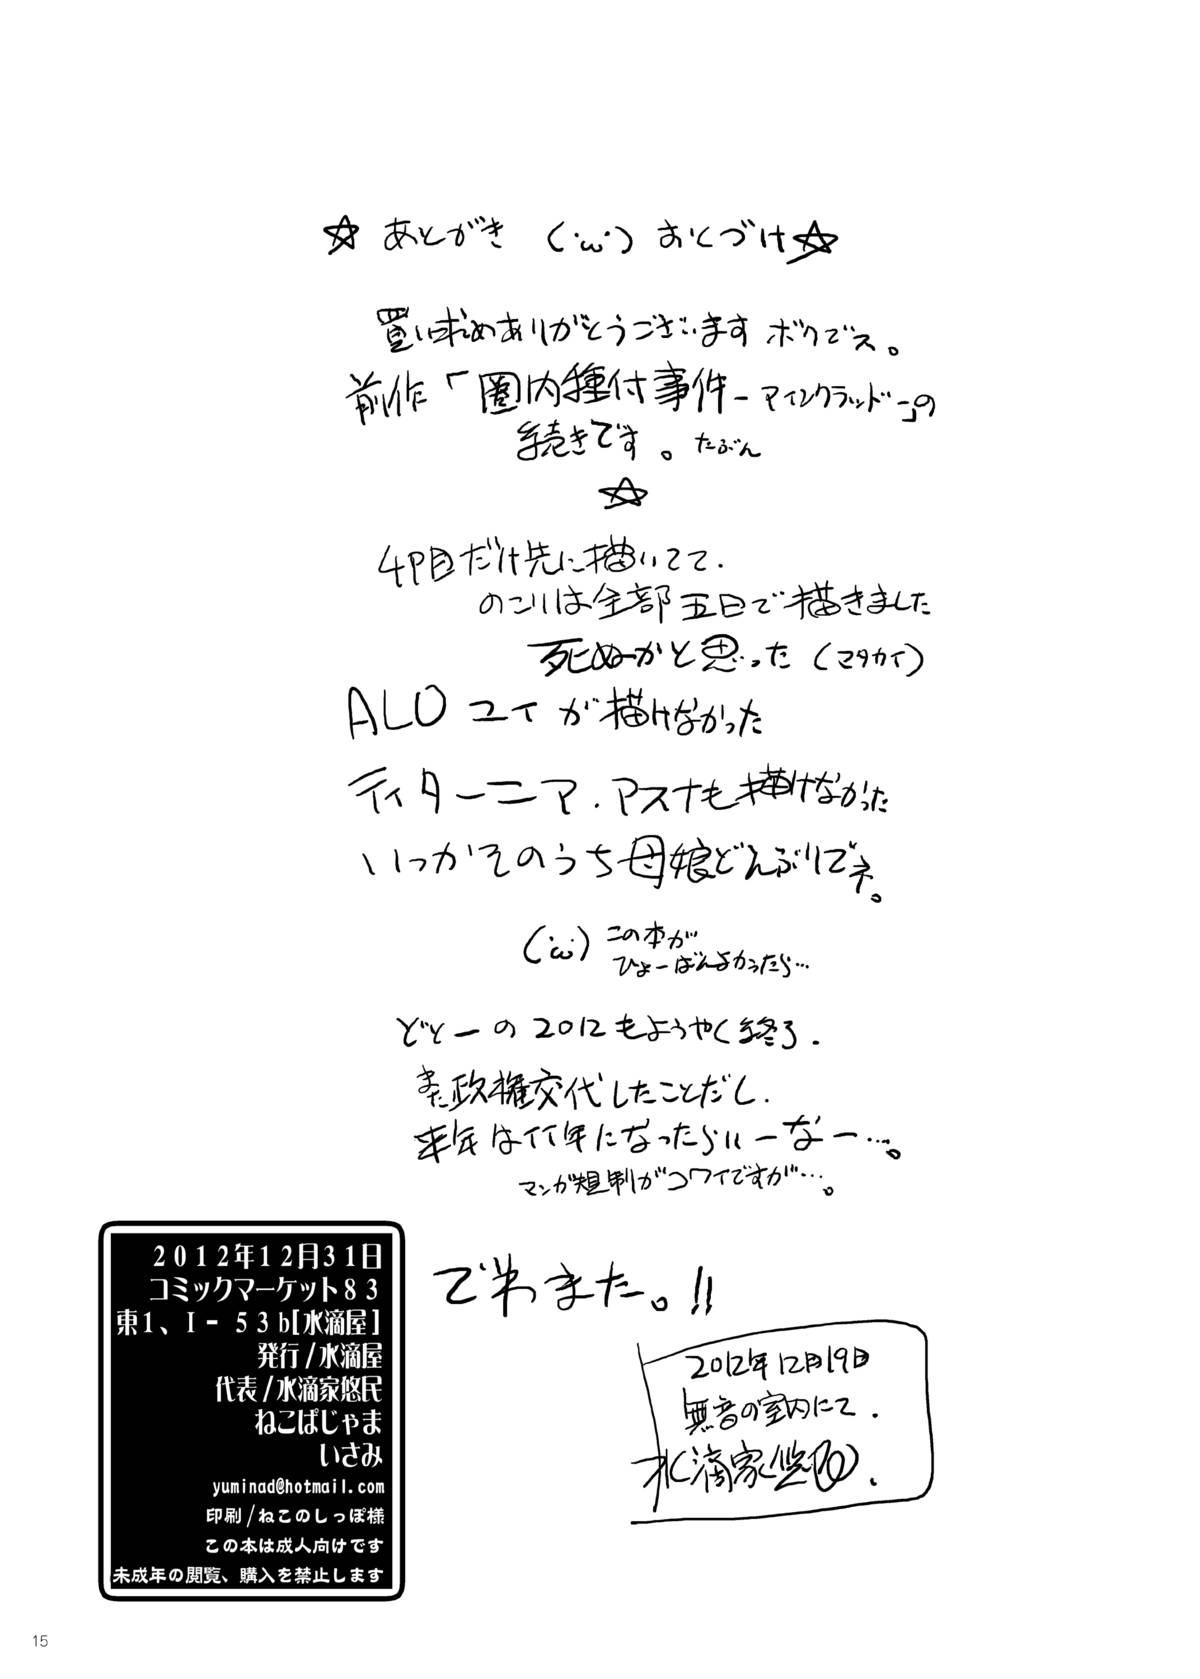 ☆ あとがき (´ω`) おくづけ☆
買い求めありがとうございますボクでス。
前作「圏内種付事件-アインクラッド-」の
続きです。たぶん
☆
4P目だけ先に描いてて.
のこりは全部五日で描きました
死ぬかと思った(マタカイ)
ALO ユイが描けなかった
ティターニア.アスナも描けなかった
いっかそのうち母娘どんぶりでネ。
(´ω`) この本が
ひょーばんよかったら…
どとーの2012もようやく終る.
また政権交代したことだし.
来年はイイ年になったらいーなー…。
マンガ規制がコワイですが…。
でわまた。!!
2012年12月19日
無音の室内にて.
水滴家悠民.
2012年12月31日
コミックマーケット83
東1、I-53b[水滴屋]
発行/水滴屋
代表/水滴家悠民
ねこぱじゃま
いさみ
yuminad@hotmail.com
印刷/ねこのしっぽ様
この本は成人向けです
未成年の閲覧、購入を禁止します
15